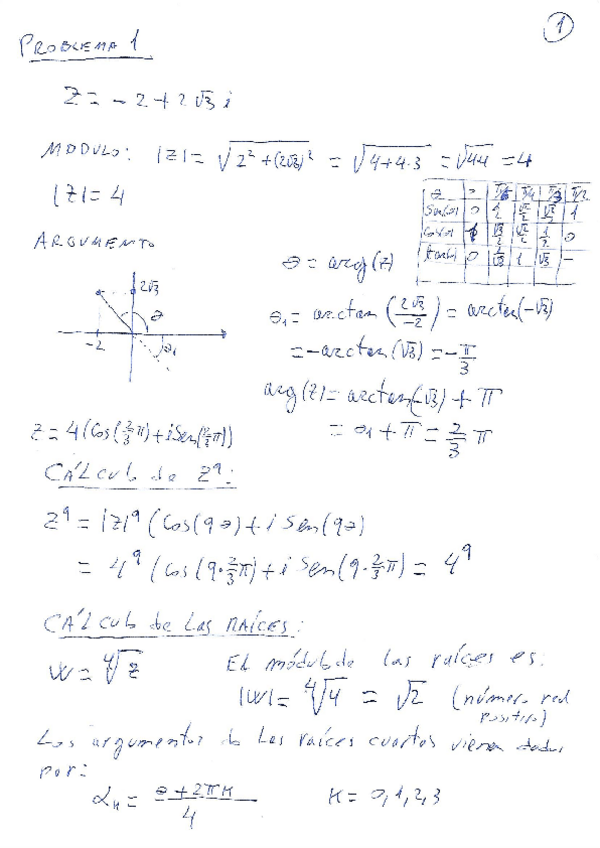 1
PROBLEMA 1
Z = -2+2√3 i
MODULO: |Z| = √(2²+(2√3)²) = √(4+4·3) = √(4·4) = 4
|Z| = 4
θ 0 π/6 π/4 π/3 π/2
Sen(θ) 0 1/2 √2/2 √3/2 1
Cos(θ) 1 √3/2 √2/2 1/2 0
tan(θ) 0 1/√3 1 √3 -
ARGUMENTO
θ = arg(z)
2√3
θ
-2
θ₁
θ₁ = arctan(2√3/-2) = arctan(-√3)
= -arctan(√3) = -π/3
arg(z) = arctan(-√3) + π
= θ₁ + π = 2/3 π
z = 4(Cos(2/3 π)+i Sen(2/3 π))
CÁLCULO de Z⁹:
Z⁹ = |Z|⁹ (Cos(9θ)+i Sen(9θ)
= 4⁹ (Cos(9·2/3 π)+i Sen(9·2/3 π) = 4⁹
CÁLCULO de las RAÍCES:
W = ⁴√z
El módulo de las raíces es:
|W| = ⁴√4 = √2 (número real
positivo)
Los argumentos de las raíces cuartas vienen dados
por:
αₖ = (θ+2πk)/4
K = 0,1,2,3